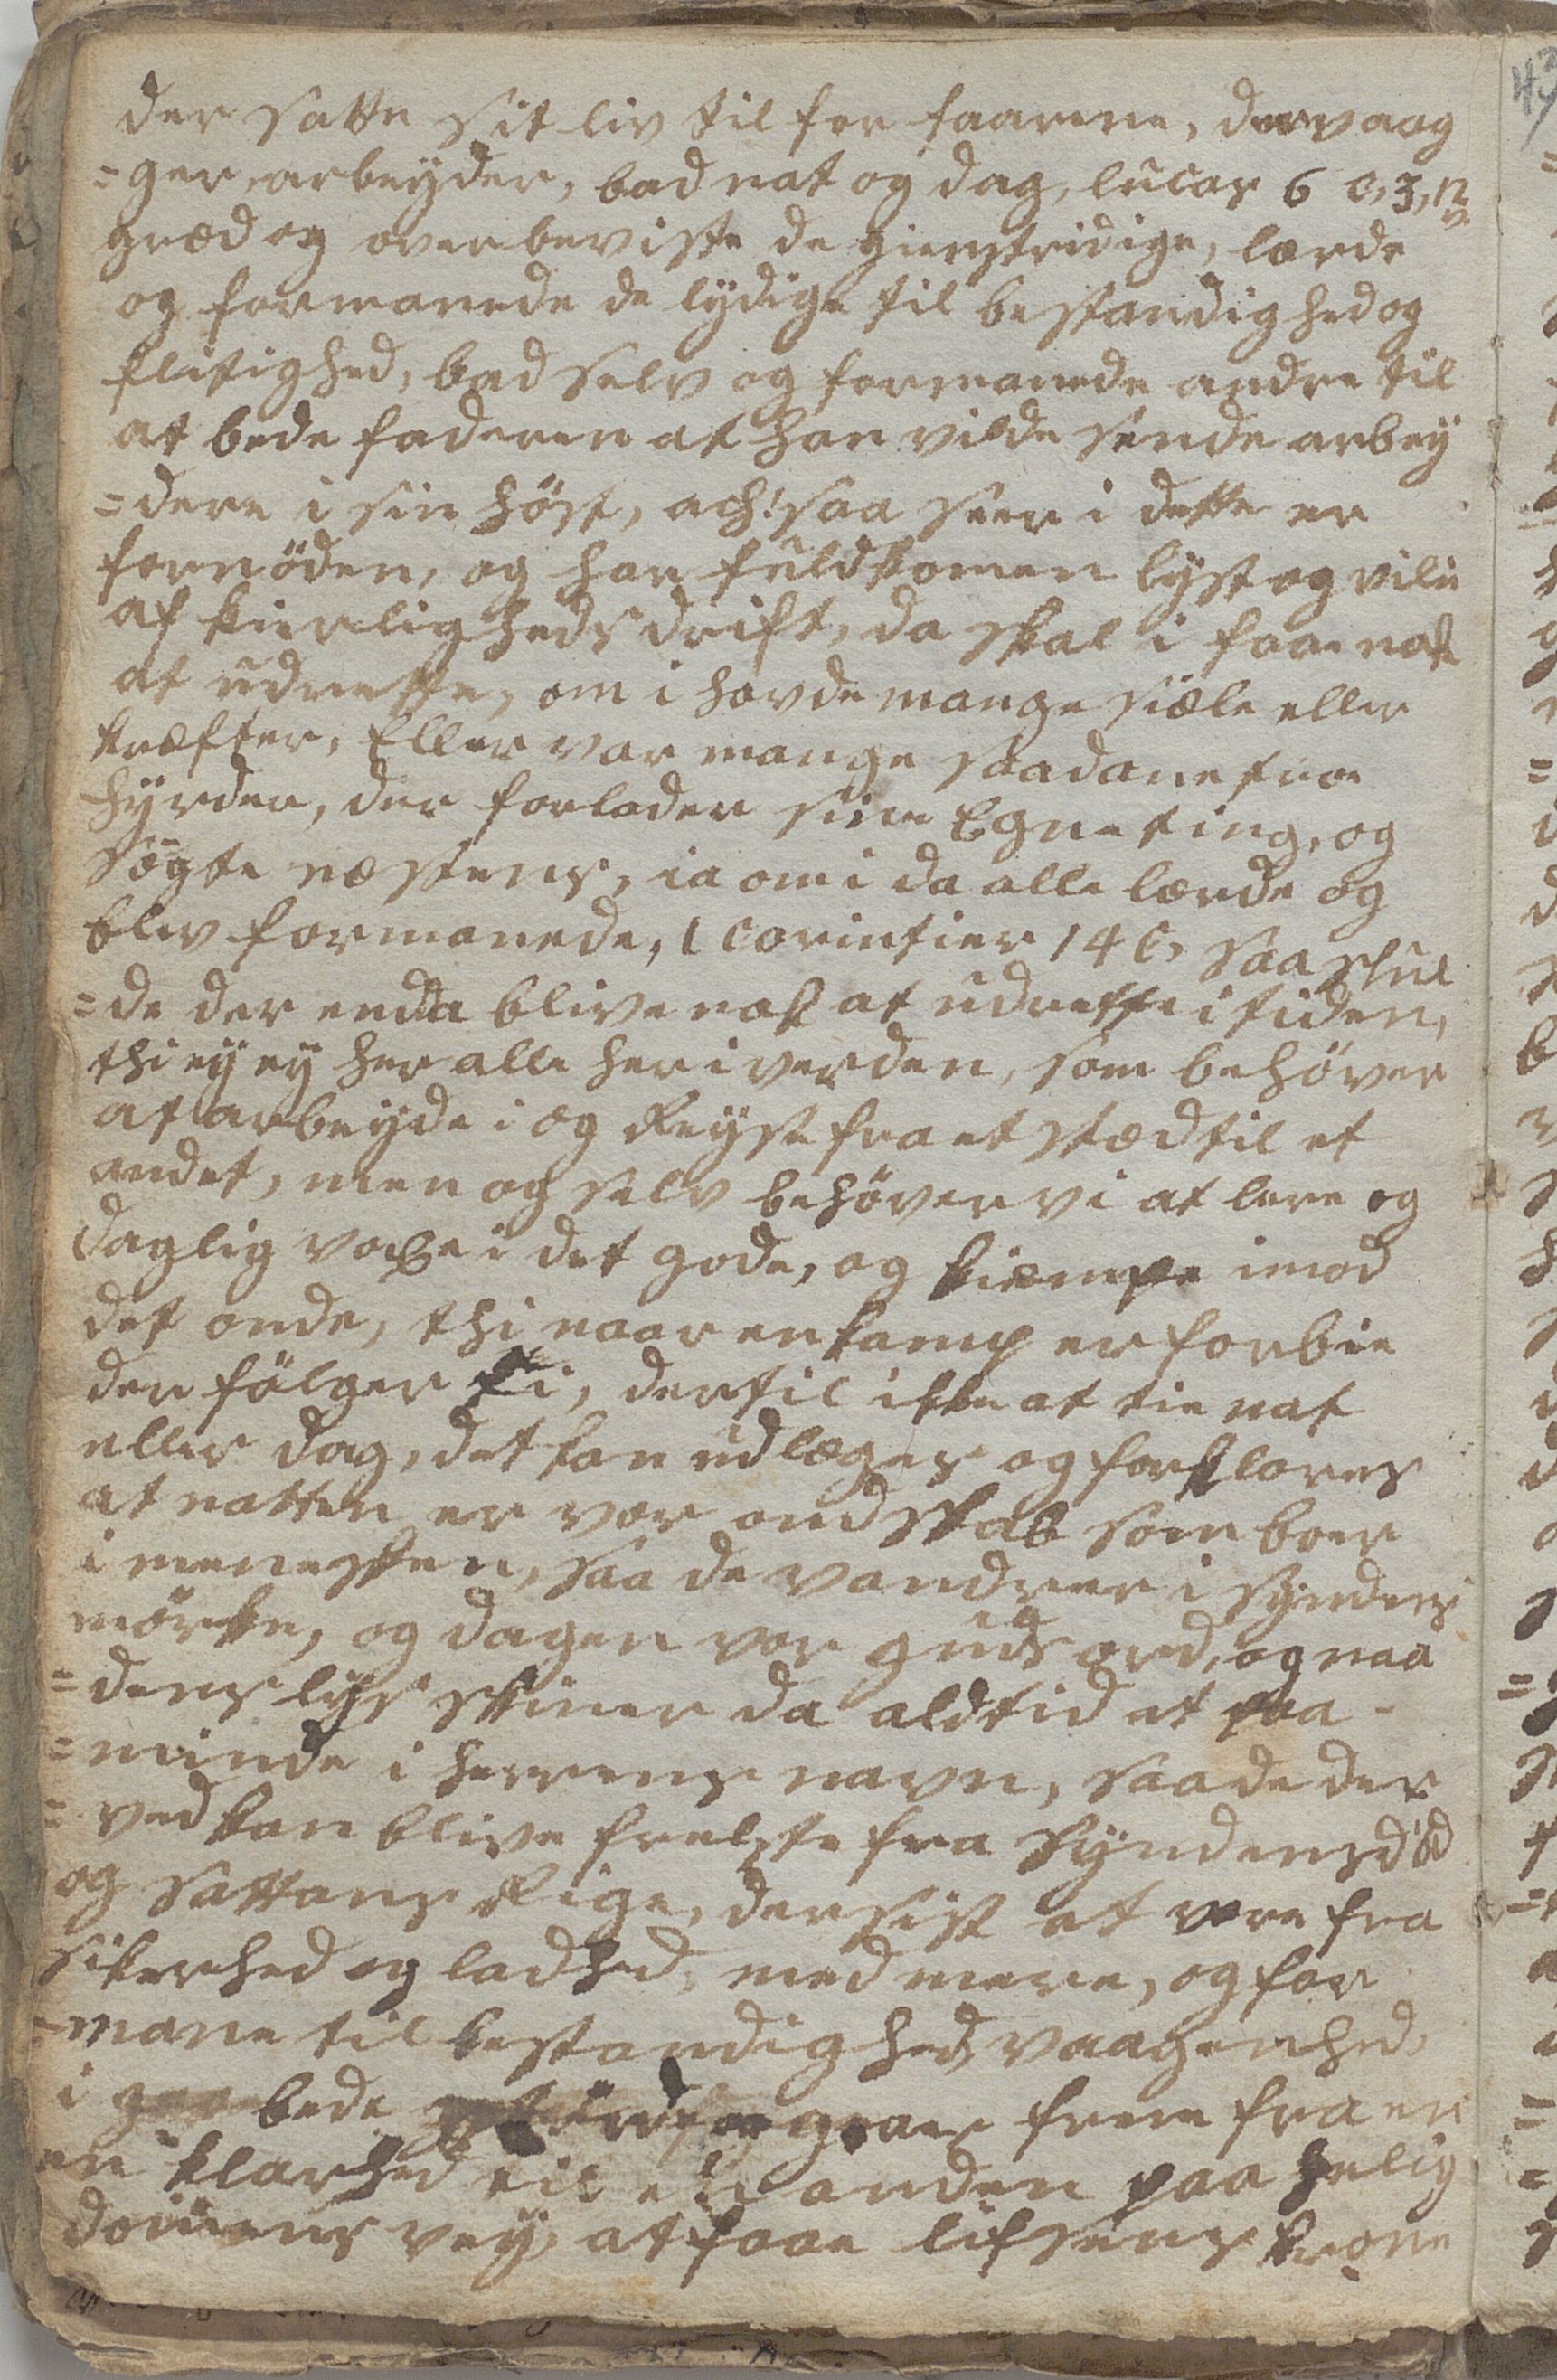 der satte sit liv til for faarene, der vaag
=ger, arbeyder, bad nat og dag, lucas 6 c, 3, 12 v.
græd og overbeviste de gienstridige, lærde
og formanede de lydige til bestandighed og
flitighed, bad selv og formanede andre til
at bede faderen at han vilde sende arbey
=dere i sin höst, ach! saa seer i dette er
fornöden, og har fuldkomen lyst og vilie
af kierligheds drift, da skal i faae nok
at udrette, om i havde mange siæle eller
kræfter, Eller var mange saadane troe
hyrder, der forlader sine Egne ting, og
sögte næstens, ia om i da alle lærde og
blev formanede, 1 Corintier 14 C, saa skul
=de der enda blive nok at udrette i tiden,
thi ey ey her alle her i verden, som behöver
at arbeyde i og Reyse fra et stæd til et
andet, men og selv behöver vi at lere og
daglig voxe i det gode, og kiempe imod
det onde, thi naar en kamp er forbie
der fölger ti, dertil ikke at tie nat
eller dag, det kan udlæges og forklares
at natten er vor ondskab som boer
i menesken, saa de vandrer i syndens
mörke, og dagen vor guds ord, og naa
=dens lys skiner da aldtid at paa-
=minde i herrens navn, saa de der
=ved kan blive frelste fra syndens död
og Sattans Rige, dersist at vere fra
sikerhed og ladhed, med mere, og for
=mane til bestandighed, vaagenhed,
i bede gaae frem fra en
en klarhed til en anden paa helig
domens vey, at faae lifsens krone